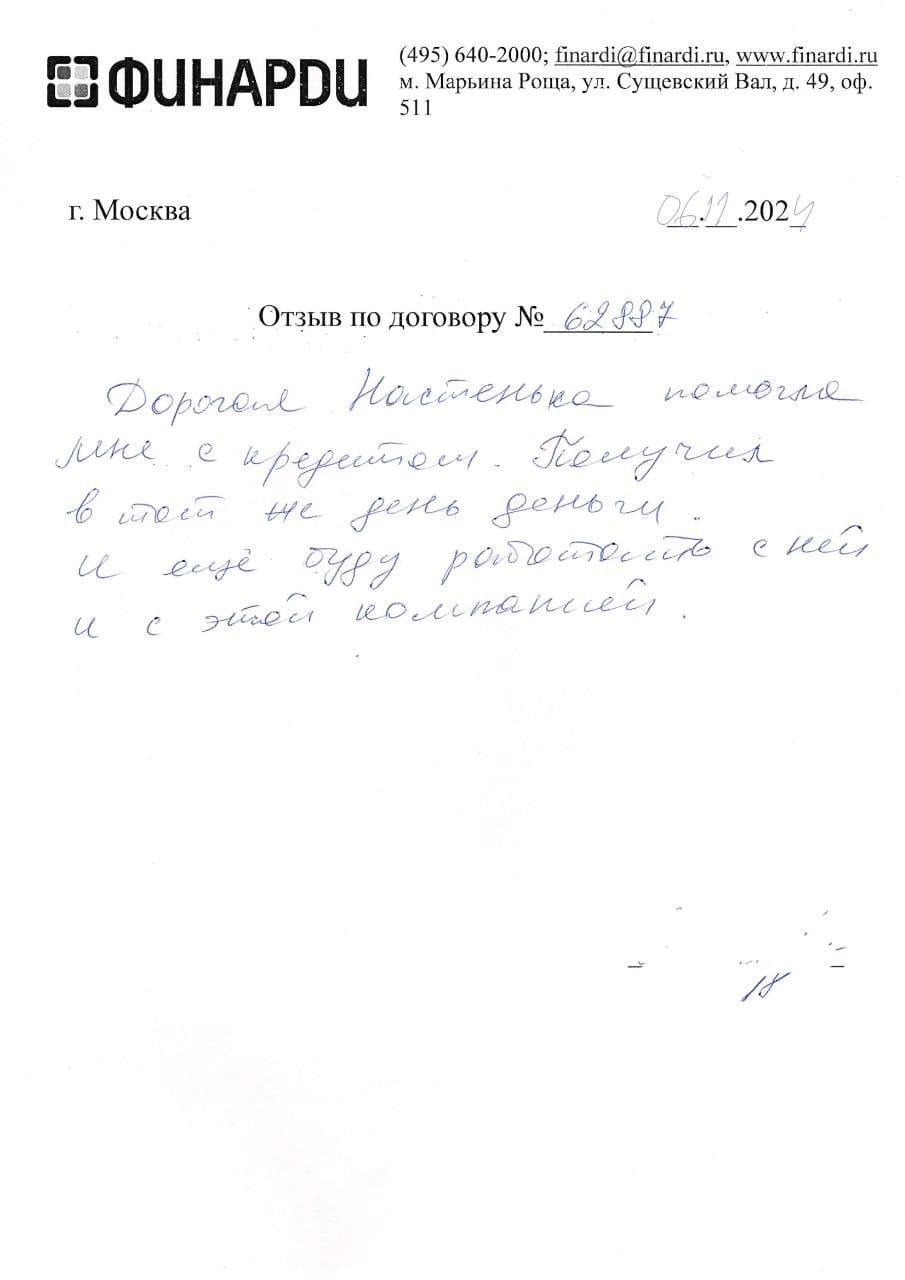 ФИНАРДИ
(495) 640-2000; finardi@finardi.ru, www.finardi.ru
м. Марьина Роща, ул. Сущевский Вал, д. 49, оф.
511
г. Москва
06.11.2024
Отзыв по договору № 62887
Дорогая Настенька помогла
мне с кредитом. Получил
в тот же день деньги.
И ещё буду работать с ней
и с этой компанией.